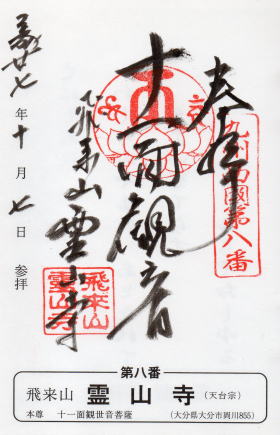 九州西國第八番
奉拝
十一面觀音
飛来山靈山寺
飛来山
霊山寺
廿七年十月七日参拝
第八番
飛来山 霊山寺 (天台宗)
本尊 十一面観世音菩薩 (大分県大分市岡川855)